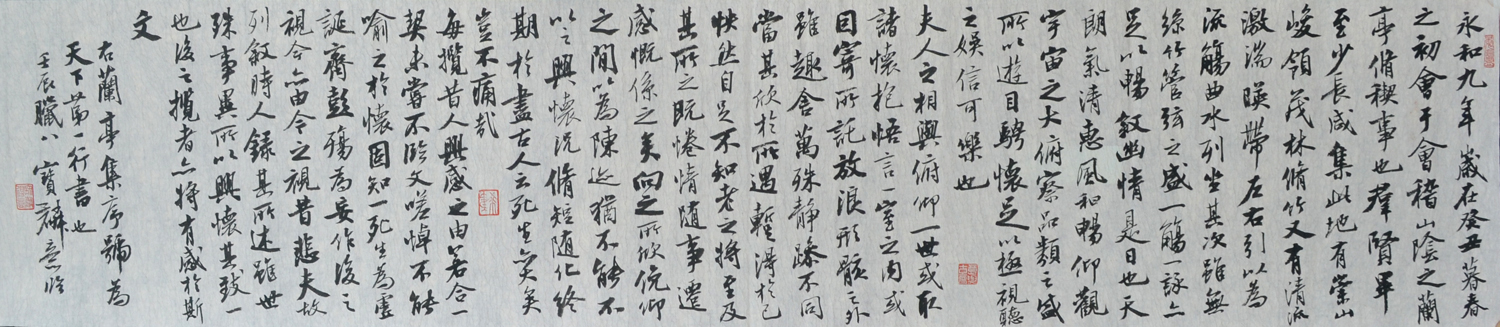 永和九年歲在癸丑暮春
之初會于會稽山陰之蘭
亭脩稧事也羣賢畢
至少長咸集此地有崇山
峻領茂林脩竹又有清流
激湍暎帶左右引以為
流觴曲水列坐其次雖無
絲竹管弦之盛一觴一詠亦
足以暢敘幽情是日也天
朗氣清惠風和暢仰觀
宇宙之大俯察品類之盛
所以遊目騁懷足以極視聽
之娛信可樂也
夫人之相與俯仰一世或取
諸懷抱悟言一室之內或
因寄所託放浪形骸之外
雖趣舍萬殊静躁不同
當其欣於所遇暫得於己
怏然自足不知老之將至及
其所之既惓情隨事遷
感慨係之矣向之所欣俛仰
之間以為陳迹猶不能不
以之興懷況脩短隨化終
期於盡古人云死生亦大矣
豈不痛哉
每攬昔人興感之由若合一
契未嘗不臨文嗟悼不能
喻之於懷固知一死生為虛
誕齊彭殤為妄作後之
視今亦由今之視昔悲夫故
列敘時人錄其所述雖世
殊事異所以興懷其致一
也後之攬者亦將有感於斯
文
右蘭亭集序號為
天下第一行書也
壬辰臘八寶麟意臨